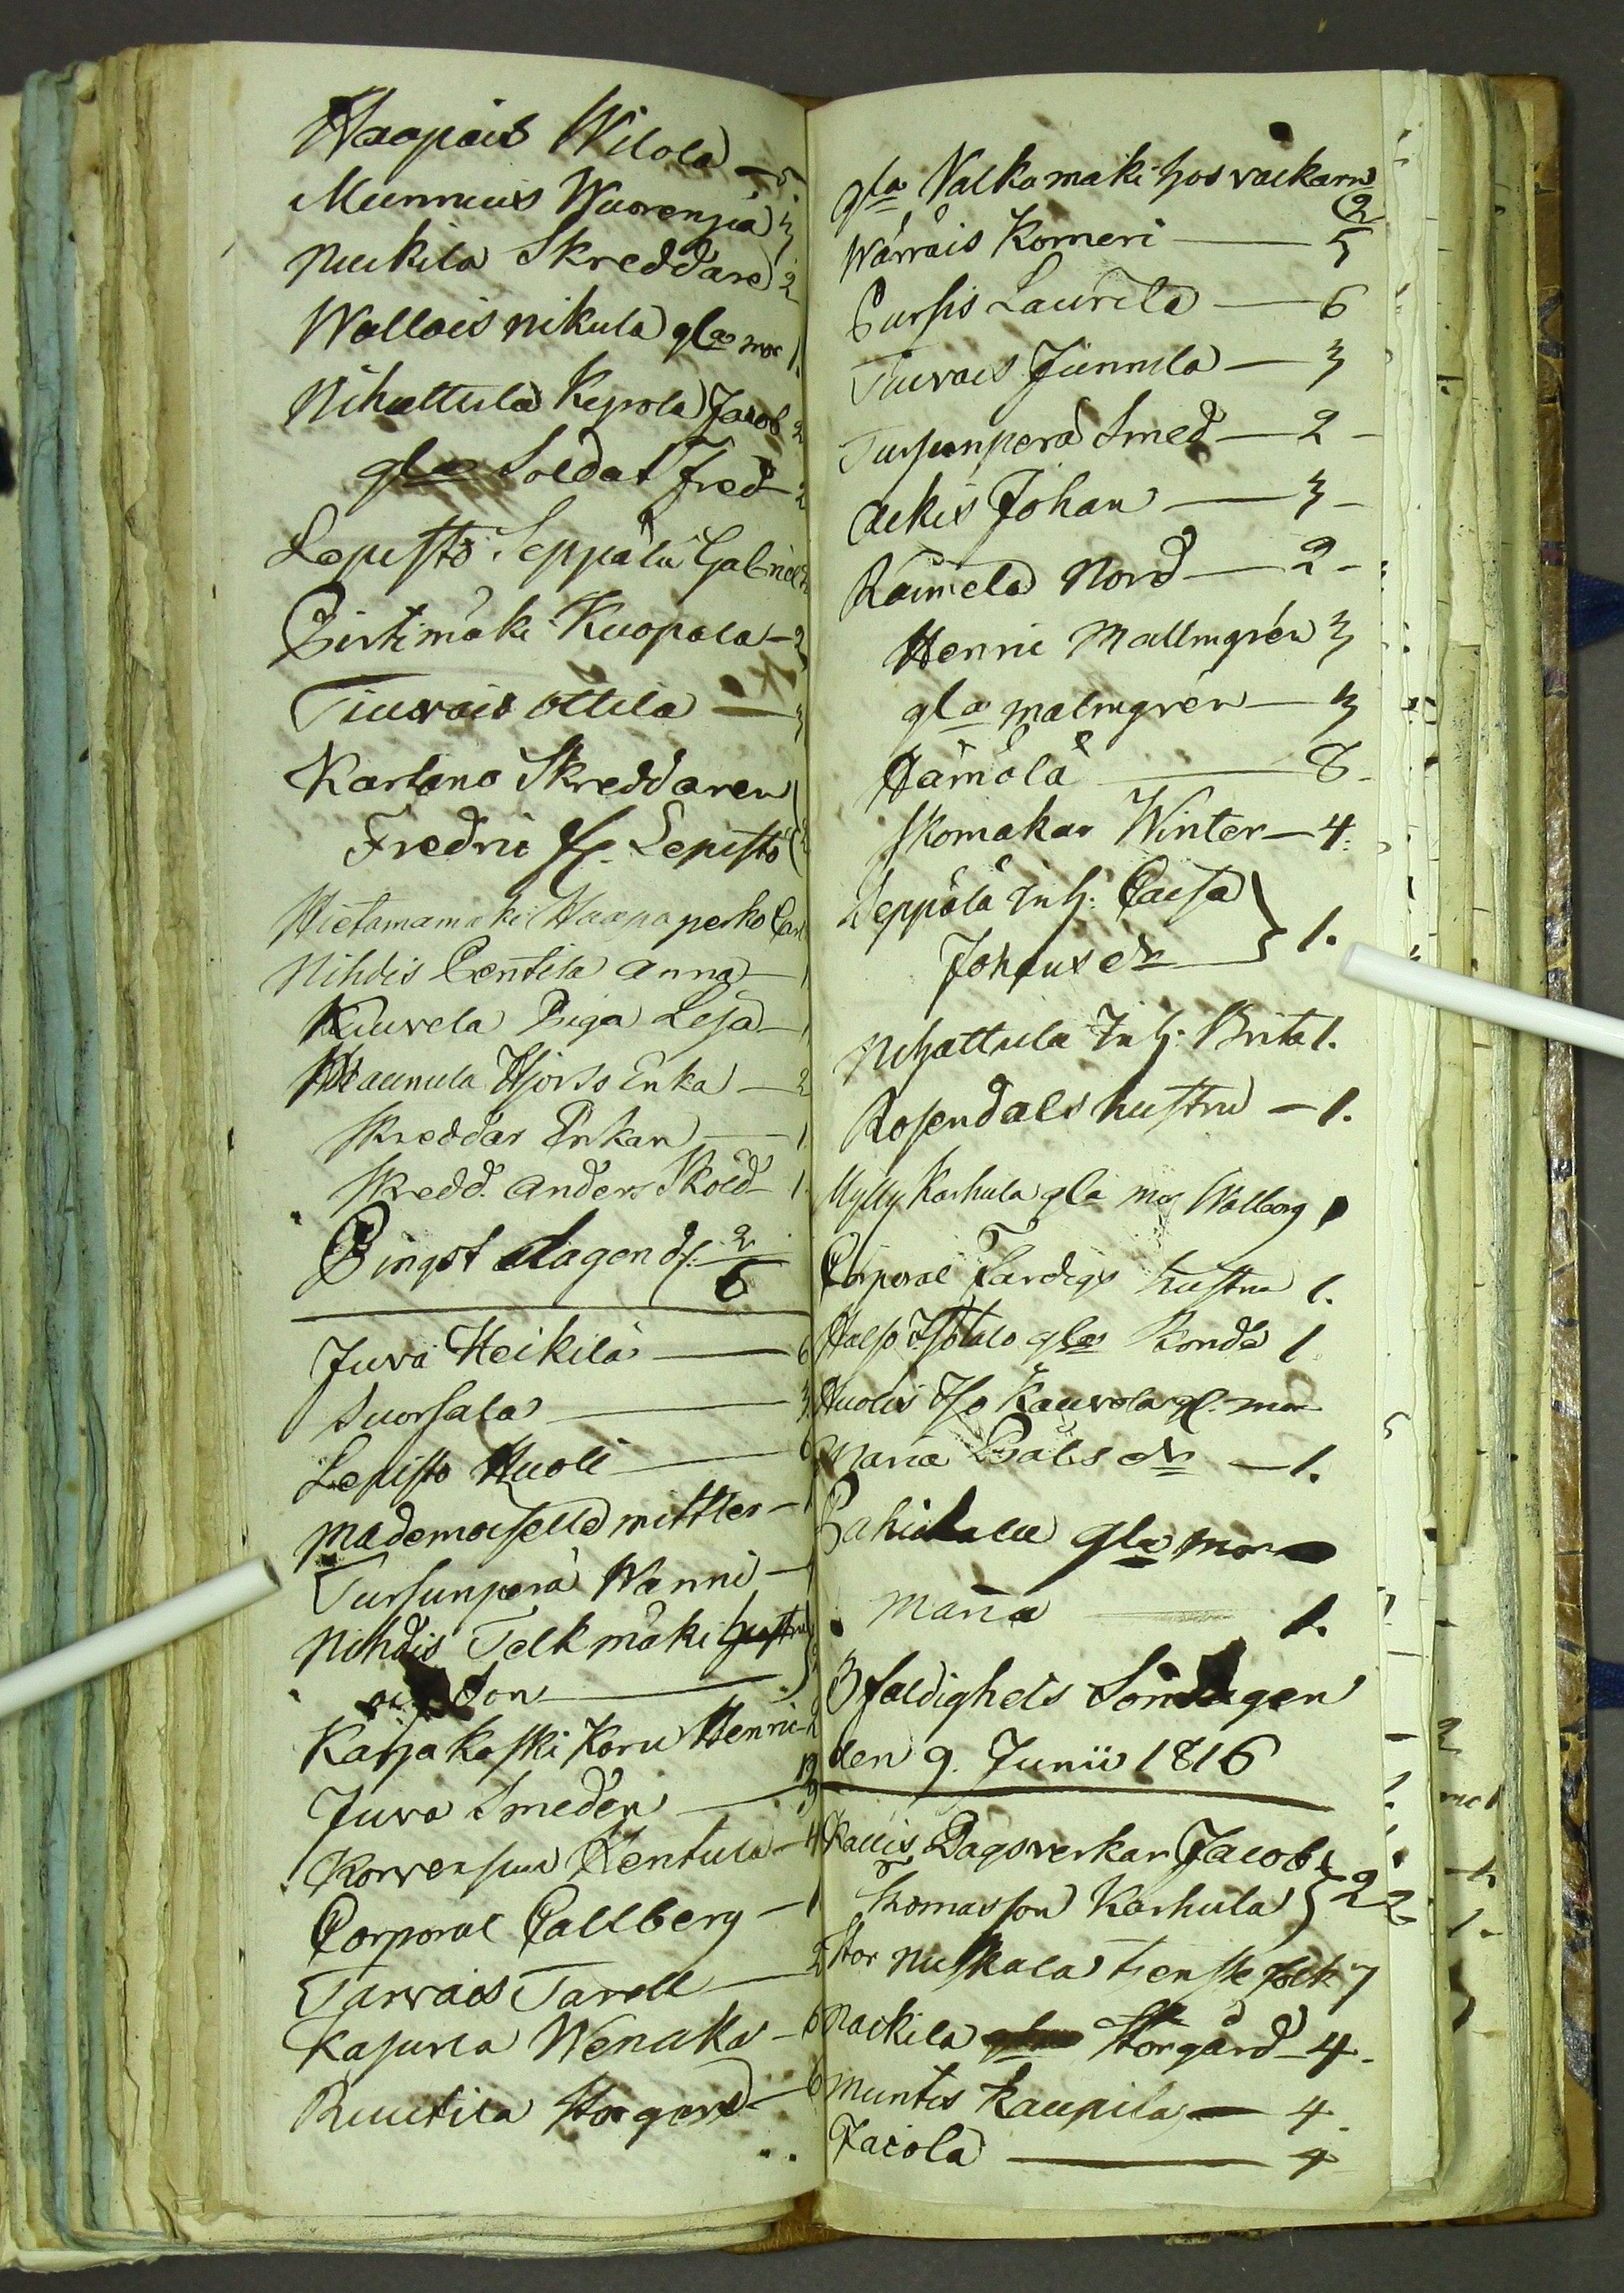 Haapais Wilola — 5
Munnuis Wuorenpä 3
Nuikila Skreddare 2
Wallais nikula gla mor 1.
Nihattula Kepola Jacob 2
gla Soldat Fred 2
Lepistö Seppälä Gabriel 2
Pirtimäki Kuopala — 2
Tiuvais ottila — 3
Kartano Skreddaren
Fredric fr. Lepistö
Hietamamäki Haapaperko Carl
Nihdis Pentila Anna — 1
Kuuvela Piga Lisa — 1
Haunula Hjorts Enka — 2
Skreddar Enkan — 1
Skredd. Anders Sköld 1.
Pingst dagen d. 2/6
Juva Heikilä — 6
Suorsala — 3
Lepisto Huoli — 6
Mademoiselle mittler — 1
Tursunperä Wänni — 1
Nihdis Talkmäki hustru
och Son — 2
Karjakoski Koru Henric 2
Juva Smeden — 3
Korvensuu Rentula — 4
Corporal Callberg — 1
Tarvais Tarell — 2
Kapuria Wenaka — 6
Ruutila Storgård — 6
gla Valkamäki hos vackarn 2
Wärräis Komeri — 5
Pursis Laurila — 6
Tiuvais Junnila — 3
Tursunperä Smed — 2 -
Ackis Johan — 3 -
Räimelä Nord — 2 -
Henric Mallmgrén 3
gla malmgrén — 3
Hämölä — 8 -
Skomakar Winter — 4.
Seppälä Inh: Caisa
Johans dr } 1.
Nihattula Inh: Brita 1.
Rosendals hustru — 1.
Mylly Karhula gla mor Walborg 1
Corporal Färdigs hustru 1.
Halso Isotalo gla Bonde 1
Huolis Iso Kauvola gl. mor
Maria Pålsdr — 1.
Pahikala gla mor
Maria 1.
3faldighets Söndagen
den 9. Junii 1816
Kallis Dagsverkar Jacob
Thomasson Karhula } 2
Stor nuskala tienste folk 7
Nackila Storgård 4 -
Muntis Kaupila — 4.
Jacola — 4